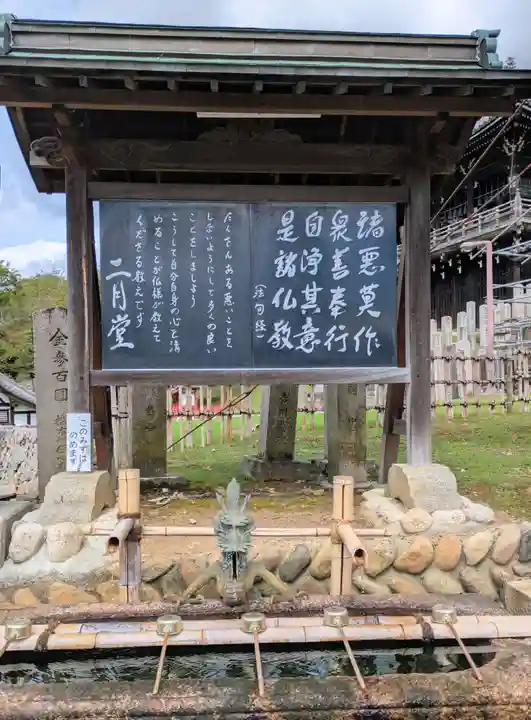 諸悪莫作
衆善奉行
自浄其意
是諸仏教
(法句経)
たくさんある悪いことを
しないようにして多くの良い
ことをしましよう
こうして自分自身の心を清
めることが仏様が教えて
くださる教えです
二月堂
このみずは
のめます
金壱百圓